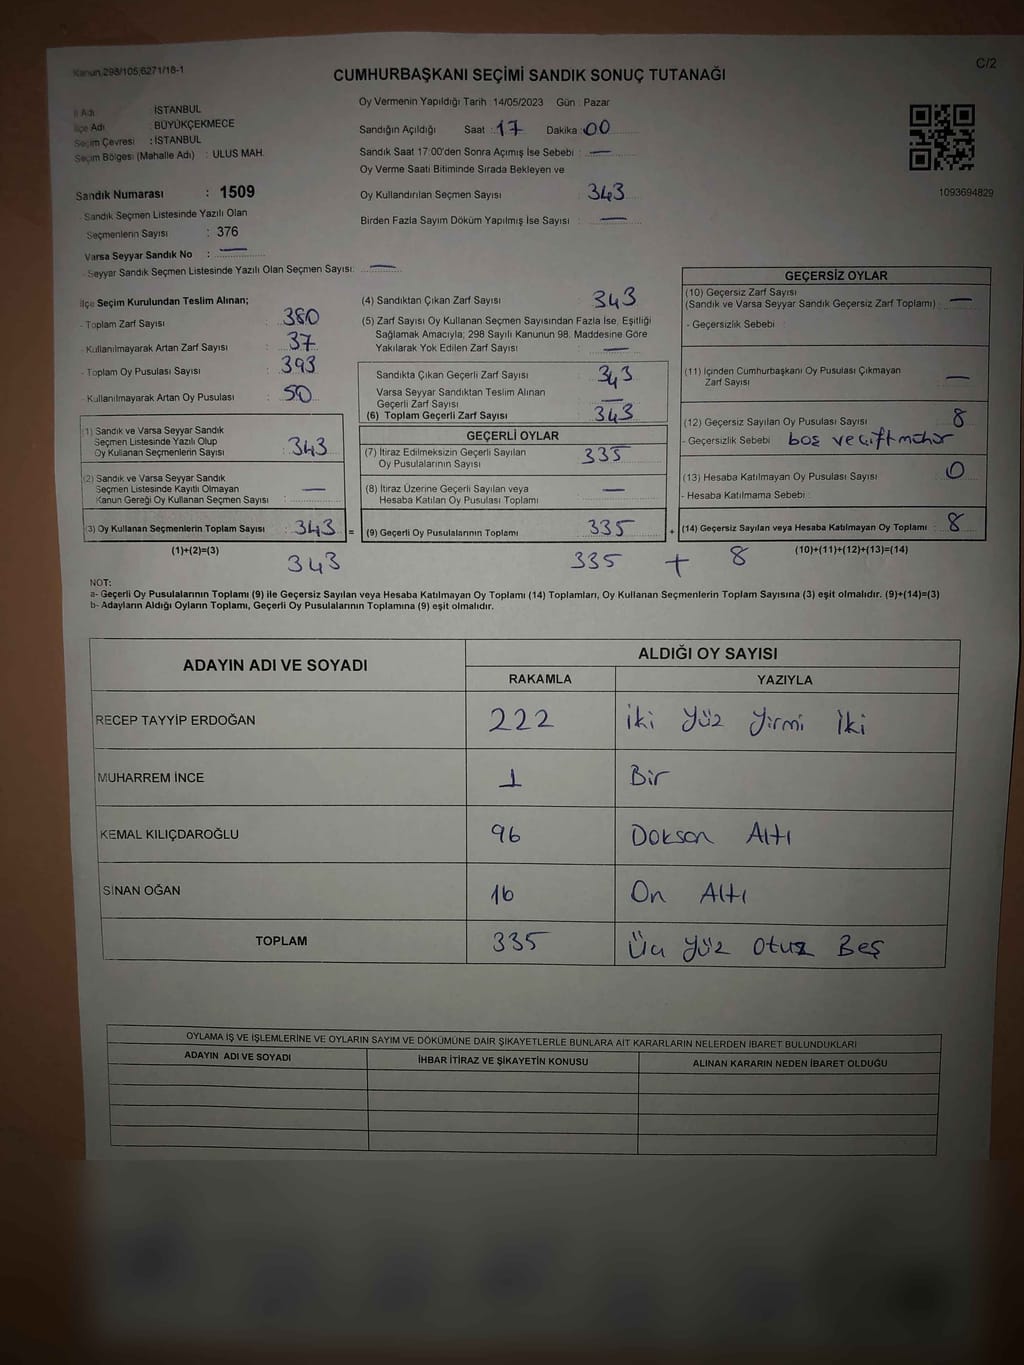 Kanun 298/105,6271/18-1
C/2
CUMHURBAŞKANI SEÇİMİ SANDIK SONUÇ TUTANAĞI
İl Adı İSTANBUL
İlçe Adı : BÜYÜKÇEKMECE
Seçim Çevresi : İSTANBUL
Seçim Bölgesi (Mahalle Adı) : ULUS MAH.
Sandık Numarası : 1509
Sandık Seçmen Listesinde Yazılı Olan
Seçmenlerin Sayısı : 376
Varsa Seyyar Sandık No : —
Seyyar Sandık Seçmen Listesinde Yazılı Olan Seçmen Sayısı: —
Oy Vermenin Yapıldığı Tarih : 14/05/2023 Gün : Pazar
Sandığın Açıldığı Saat : 17 Dakika : 00
Sandık Saat 17:00'den Sonra Açımış İse Sebebi : —
Oy Verme Saati Bitiminde Sırada Bekleyen ve
Oy Kullandırılan Seçmen Sayısı : 343
Birden Fazla Sayım Döküm Yapılmış İse Sayısı : —
1093694829
İlçe Seçim Kurulundan Teslim Alınan;
- Toplam Zarf Sayısı : 380
- Kullanılmayarak Artan Zarf Sayısı : 37
- Toplam Oy Pusulası Sayısı : 393
- Kullanılmayarak Artan Oy Pusulası : 50
(1) Sandık ve Varsa Seyyar Sandık
Seçmen Listesinde Yazılı Olup
Oy Kullanan Seçmenlerin Sayısı : 343
(2) Sandık ve Varsa Seyyar Sandık
Seçmen Listesinde Kayıtlı Olmayan
Kanun Gereği Oy Kullanan Seçmen Sayısı : —
(3) Oy Kullanan Seçmenlerin Toplam Sayısı : 343 =
(1)+(2)=(3)
343
(4) Sandıktan Çıkan Zarf Sayısı : 343
(5) Zarf Sayısı Oy Kullanan Seçmen Sayısından Fazla İse, Eşitliği
Sağlamak Amacıyla; 298 Sayılı Kanunun 98. Maddesine Göre
Yakılarak Yok Edilen Zarf Sayısı : —
Sandıkta Çıkan Geçerli Zarf Sayısı : 343
Varsa Seyyar Sandıktan Teslim Alınan
Geçerli Zarf Sayısı : —
(6) Toplam Geçerli Zarf Sayısı : 343
GEÇERLİ OYLAR
(7) İtiraz Edilmeksizin Geçerli Sayılan
Oy Pusulalarının Sayısı : 335
(8) İtiraz Üzerine Geçerli Sayılan veya
Hesaba Katılan Oy Pusulası Toplamı : —
(9) Geçerli Oy Pusulalarının Toplamı : 335 +
335 + 8
GEÇERSİZ OYLAR
(10) Geçersiz Zarf Sayısı
(Sandık ve Varsa Seyyar Sandık Geçersiz Zarf Toplamı) : —
- Geçersizlik Sebebi :
(11) İçinden Cumhurbaşkanı Oy Pusulası Çıkmayan
Zarf Sayısı : —
(12) Geçersiz Sayılan Oy Pusulası Sayısı : 8
- Geçersizlik Sebebi : boş ve çift mühür
(13) Hesaba Katılmayan Oy Pusulası Sayısı : 0
- Hesaba Katılmama Sebebi :
(14) Geçersiz Sayılan veya Hesaba Katılmayan Oy Toplamı : 8
(10)+(11)+(12)+(13)=(14)
NOT:
a- Geçerli Oy Pusulalarının Toplamı (9) ile Geçersiz Sayılan veya Hesaba Katılmayan Oy Toplamı (14) Toplamları, Oy Kullanan Seçmenlerin Toplam Sayısına (3) eşit olmalıdır. (9)+(14)=(3)
b- Adayların Aldığı Oyların Toplamı, Geçerli Oy Pusulalarının Toplamına (9) eşit olmalıdır.
ADAYIN ADI VE SOYADI
ALDIĞI OY SAYISI
RAKAMLA YAZIYLA
RECEP TAYYİP ERDOĞAN 222 İki Yüz Yirmi İki
MUHARREM İNCE 1 Bir
KEMAL KILIÇDAROĞLU 96 Doksan Altı
SİNAN OĞAN 16 On Altı
TOPLAM 335 Üç Yüz Otuz Beş
OYLAMA İŞ VE İŞLEMLERİNE VE OYLARIN SAYIM VE DÖKÜMÜNE DAİR ŞİKAYETLERLE BUNLARA AİT KARARLARIN NELERDEN İBARET BULUNDUKLARI
ADAYIN ADI VE SOYADI İHBAR İTİRAZ VE ŞİKAYETİN KONUSU ALINAN KARARIN NEDEN İBARET OLDUĞU